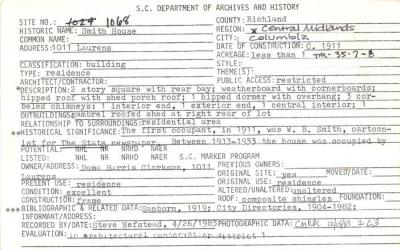 S.C. DEPARTMENT OF ARCHIVES AND HISTORY
SITE NO.: 1068 COUNTY: Richland
HISTORIC NAME: Smith House REGION: x Central Midlands
COMMON NAME: CITY: Columbia
ADDRESS: 1011 Laurens DATE OF CONSTRUCTION: C. 1911
ACREAGE: less than 1 TM-35-7-8
CLASSIFICATION: building STYLE:
TYPE: residence THEME(S):
ARCHITECT/CONTRACTOR: PUBLIC ACCESS: restricted
*DESCRIPTION: 2 story square with rear bay; weatherboard with cornerboards;
hipped roof with shed porch roof; 1 hipped dormer with overhang; 3 cor-
beled chimneys: 1 interior end, 1 exterior end, 1 central interior; 1
OUTBUILDINGS: gambrel roofed shed at right rear of lot
RELATIONSHIP TO SURROUNDINGS: residential area
**HISTORICAL SIGNIFICANCE: The first occupant, in 1911, was W. B. Smith, cartoon-
ist for The State newspaper. Between 1913-1933 the house was occupied by
POTENTIAL: NHL NR RHD NAER
LISTED: NHL NR RHD NAER S.C. MARKER PROGRAM
OWNER/ADDRESS: Duma Harris Clarkson, 1011 PREVIOUS OWNERS:
Laurens ORIGINAL SITE: yes MOVED/DATE:
PRESENT USE: residence ORIGINAL USE: residence
CONDITION: excellent ALTERED/UNALTERED: unaltered
CONSTRUCTION: frame ROOF: composite shingles FOUNDATION:
***BIBLIOGRAPHIC & RELATED DATA: Sanborn, 1919; City Directories, 1904-1982;
INFORMANT/ADDRESS:
RECORDED BY/DATE: Steve Nefstead, 4/26/1983 PHOTOGRAPHIC DATA:
EVALUATION: in Architectural conservation district 1